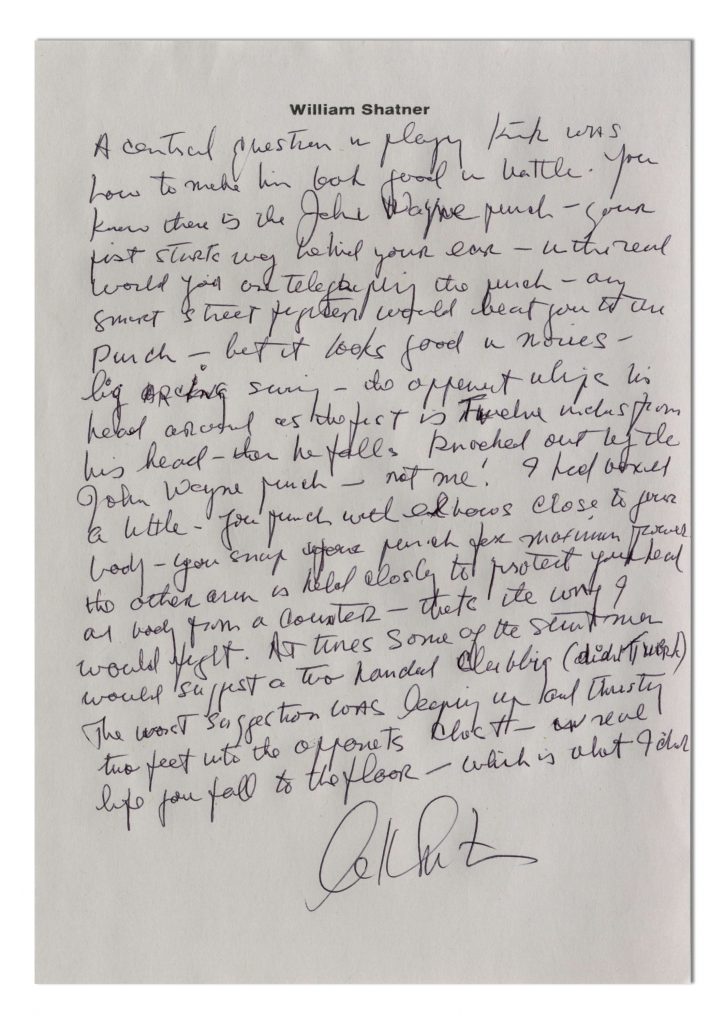 William Shatner
A central question in playing Kirk was
how to make him look good in battle. You
know there is the John Wayne punch – your
fist starts way behind your ear – in the real
world you are telegraphing the punch – any
smart street fighter would beat you to the
punch – but it looks good in movies –
big arcing swing – the opponent whips his
head around as the fist is twelve inches from
his head – then he falls knocked out by the
John Wayne punch – not me! I had boxed
a little – you punch with elbows close to your
body – you snap your punch for maximum power
the other arm is held closely to protect your head
or body from a counter – thats the way I
would fight. At times some of the stuntmen
would suggest a two handed clubbing (didn't work)
The worst suggestion was leaping up and thrusting
two feet into the opponets chest – in real
life you fall to the floor – which is what I did